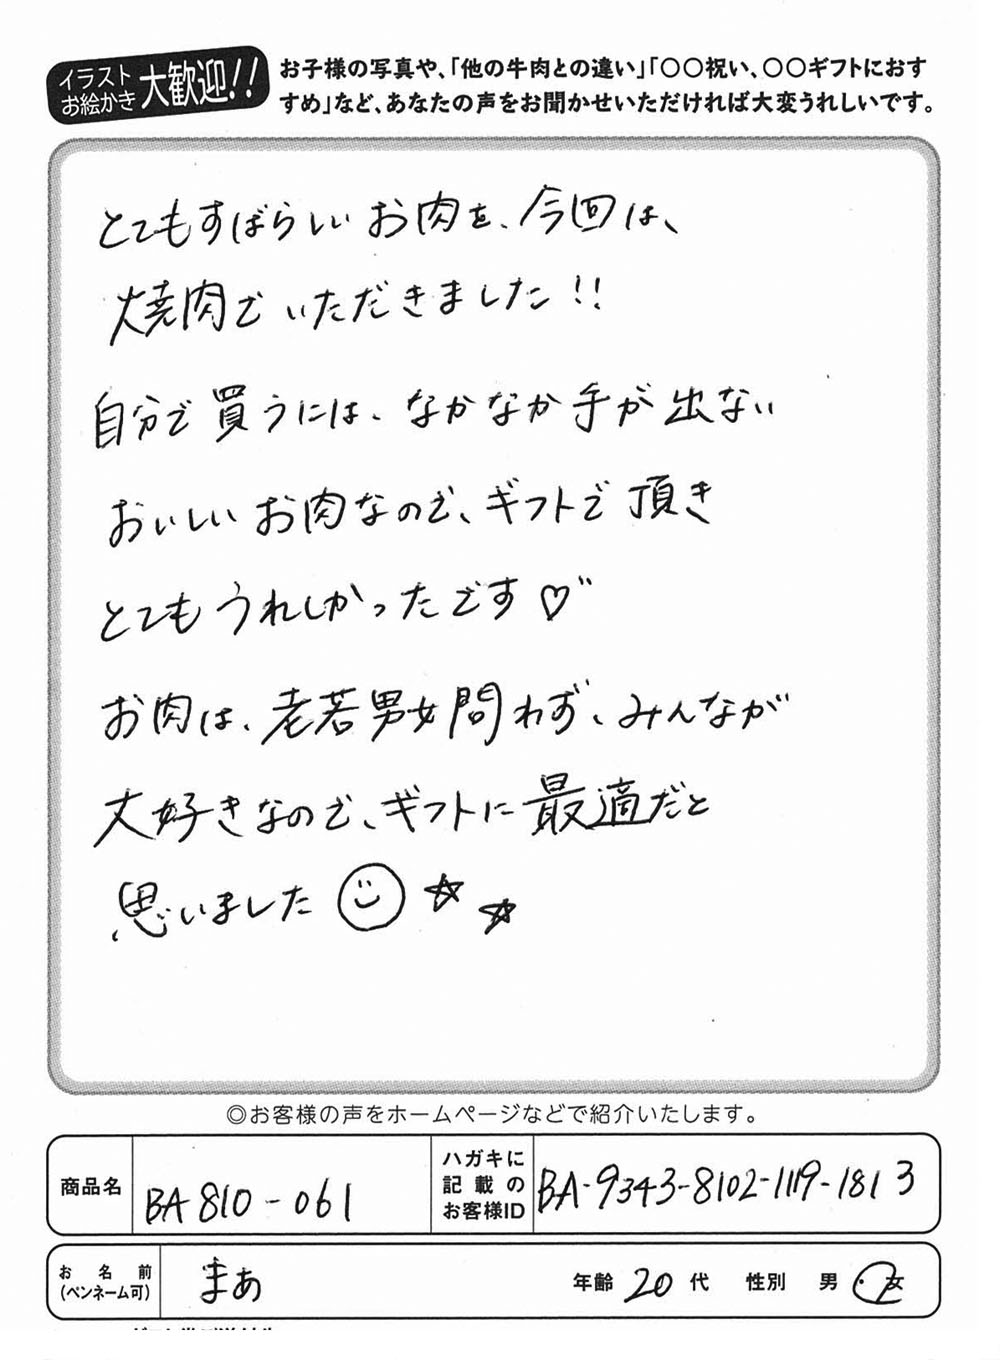 イラスト
お絵かき
大歓迎!!
お子様の写真や、「他の牛肉との違い」「○○祝い、○○ギフトにおす
すめ」など、あなたの声をお聞かせいただければ大変うれしいです。
とてもすばらしいお肉を、今回は、
焼肉でいただきました!!
自分で買うには、なかなか手が出ない
おいしいお肉なので、ギフトで頂き
とてもうれしかったです♡
お肉は、老若男女問わず、みんなが
大好きなので、ギフトに最適だと
思いました
◎お客様の声をホームページなどで紹介いたします。
商品名 BA810-061
ハガキに
記載の
お客様ID
BA-9343-8102-1119-1813
お名前
(ペンネーム可)
まあ
年齢 20代 性別 男・女